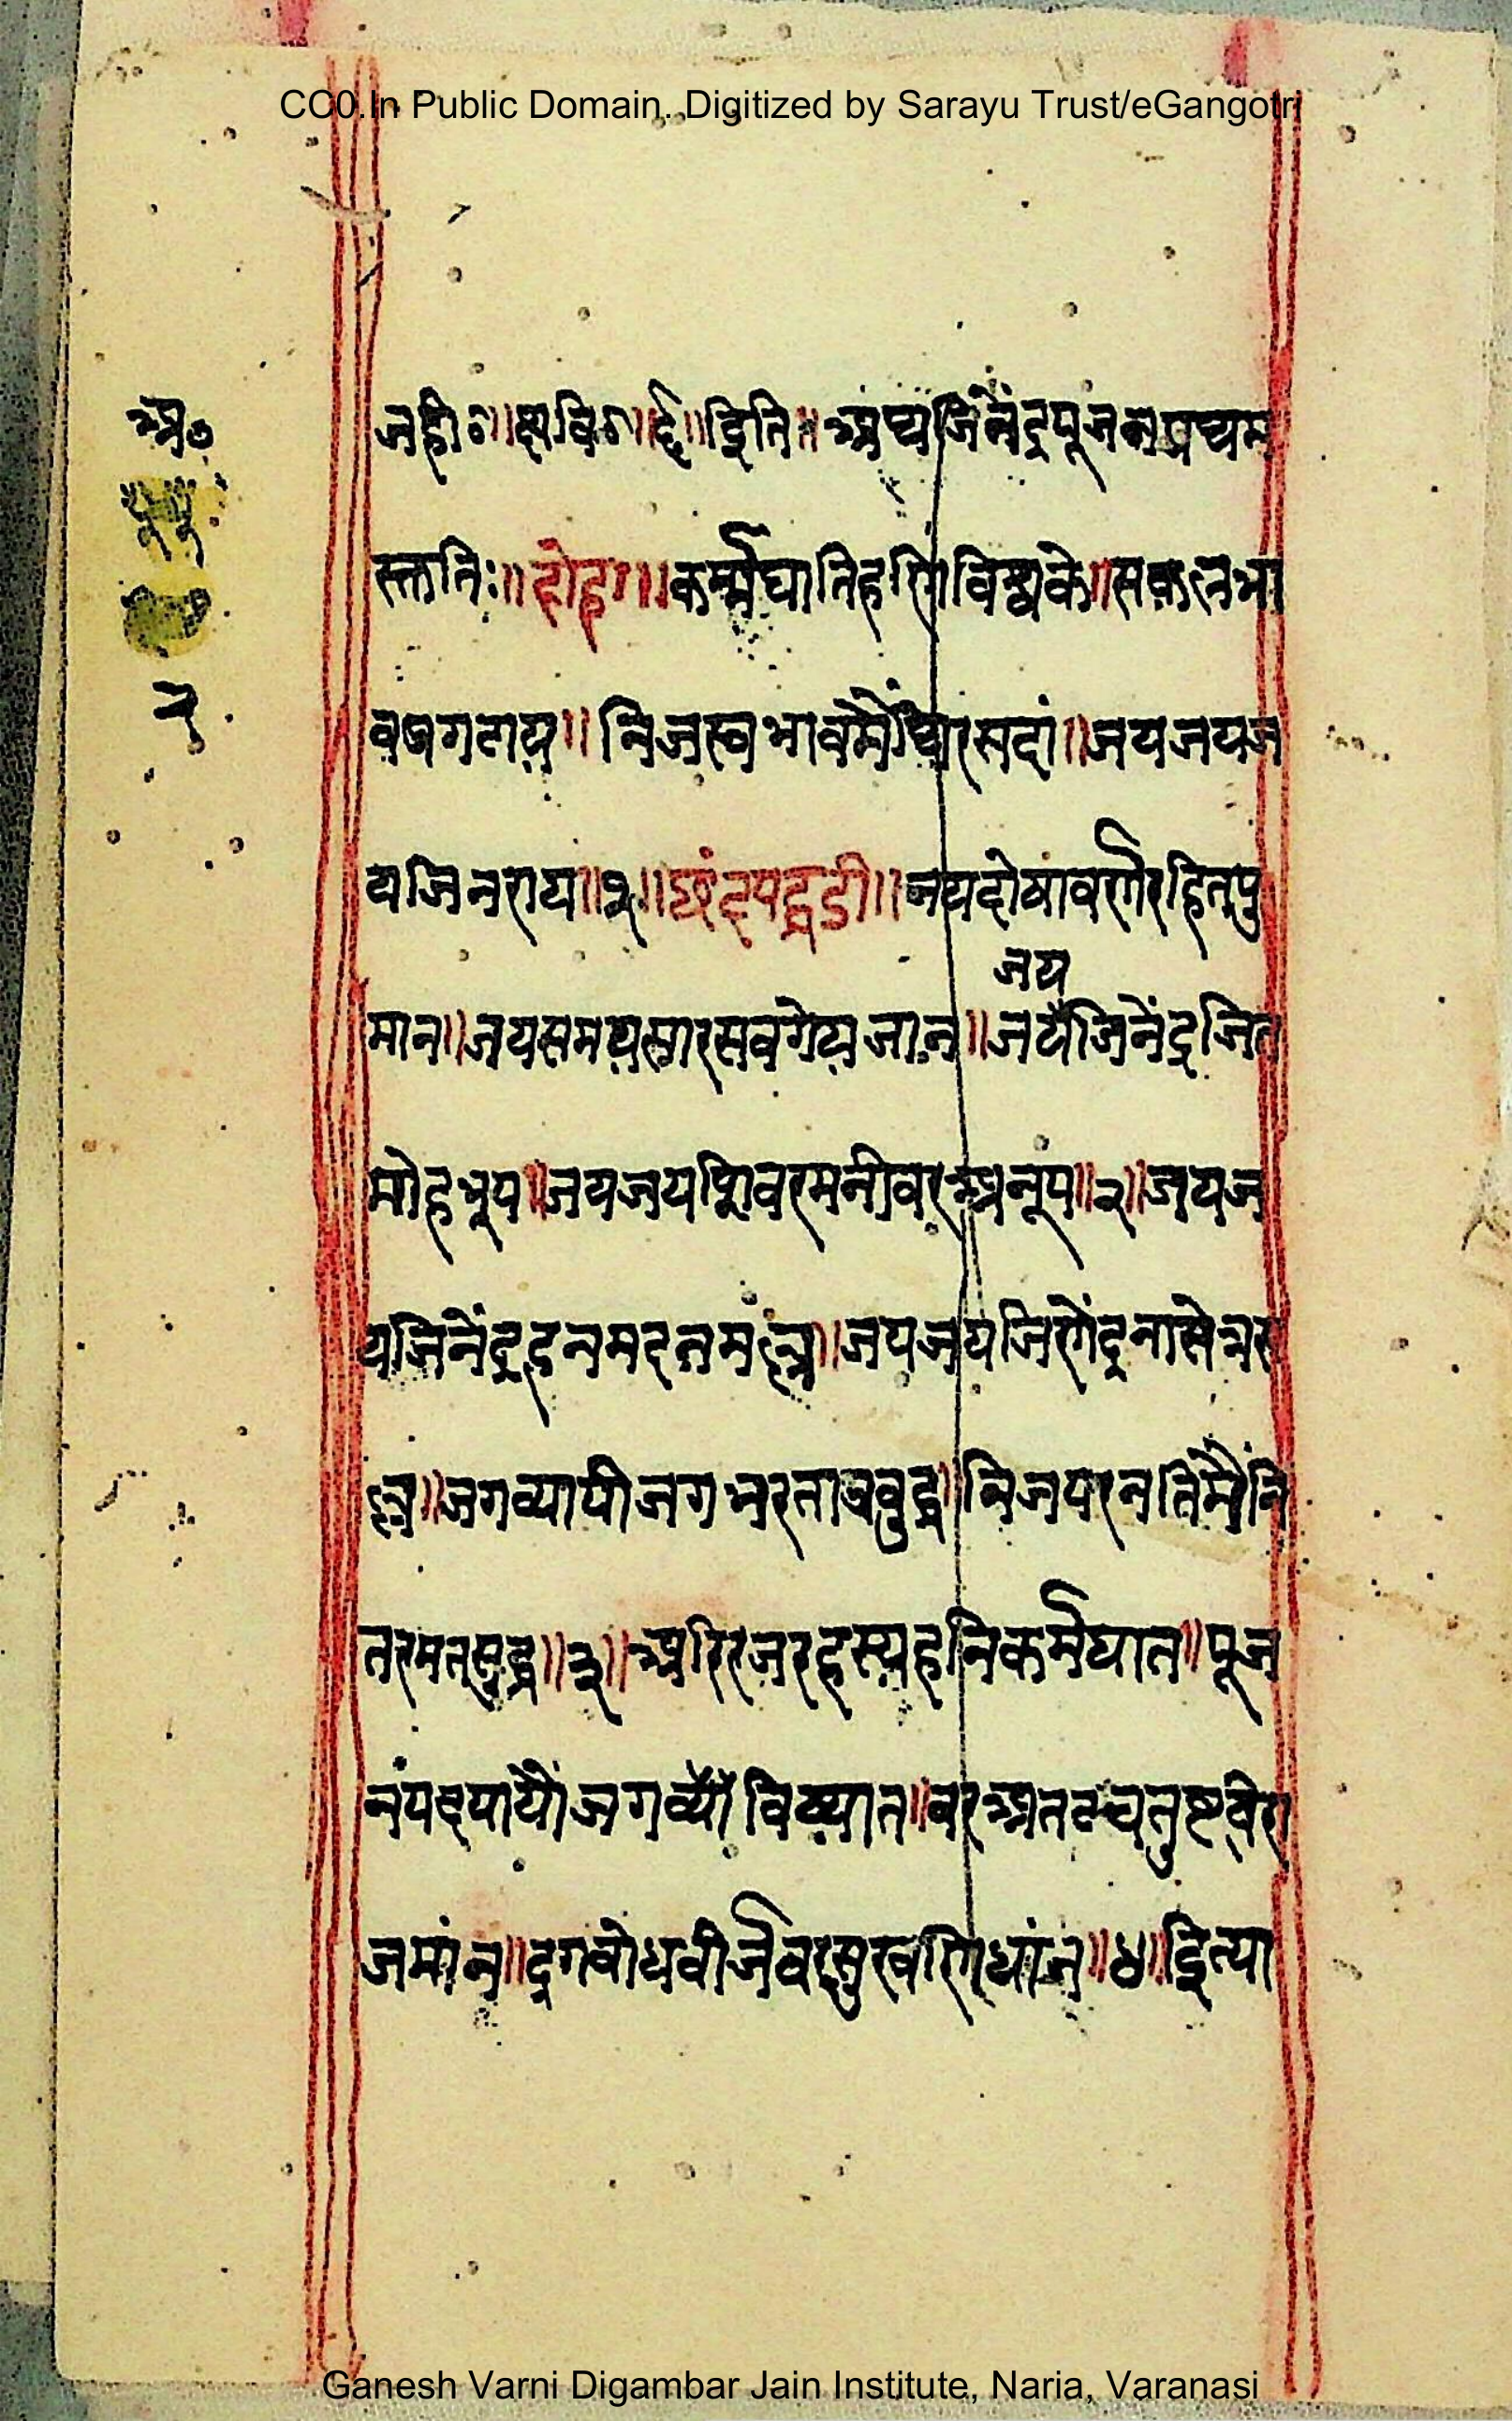 CC0.In Public Domain. Digitized by Sarayu Trust/eGangotri
अ०
२
॥ इति ॥ अथ जिनेंद्रपूजन प्रथम
स्तुतिः ॥ दोहा ॥ कर्म्मघाति हरि विश्वके ॥ सकल भा
व ॥ निजस्वभावमैं सदां ॥ जय जय ज
य जिनराय ॥ १ ॥ छंद पद्धडी ॥ जय दोषावर्ण रहित पु
जय
मान ॥ जय समयसार सव गेय जान ॥ जय जिनेंद्र जित
मोहभूप ॥ जय जय शिवरमनीवर अनूप ॥ २ ॥ जय ज
य जिनेंद्र हन मदनमल्ल ॥ जय जय जिणेंद्र नासे त्रस
ल्ल ॥ जगव्यापी जग भरता प्रवुद्ध ॥ निज परनतिमैं नि
त रमत सुद्ध ॥ ३ ॥ अरि रज रहस्य हनि कर्मघात ॥ पूज
नंपद पायौं जग विख्यात ॥ वर अनतचतुष्टय विरा
जमांन ॥ द्रगवोधवीर्ज वर सुख णिधांन ॥ ४ ॥ इत्या
Ganesh Varni Digambar Jain Institute, Naria, Varanasi